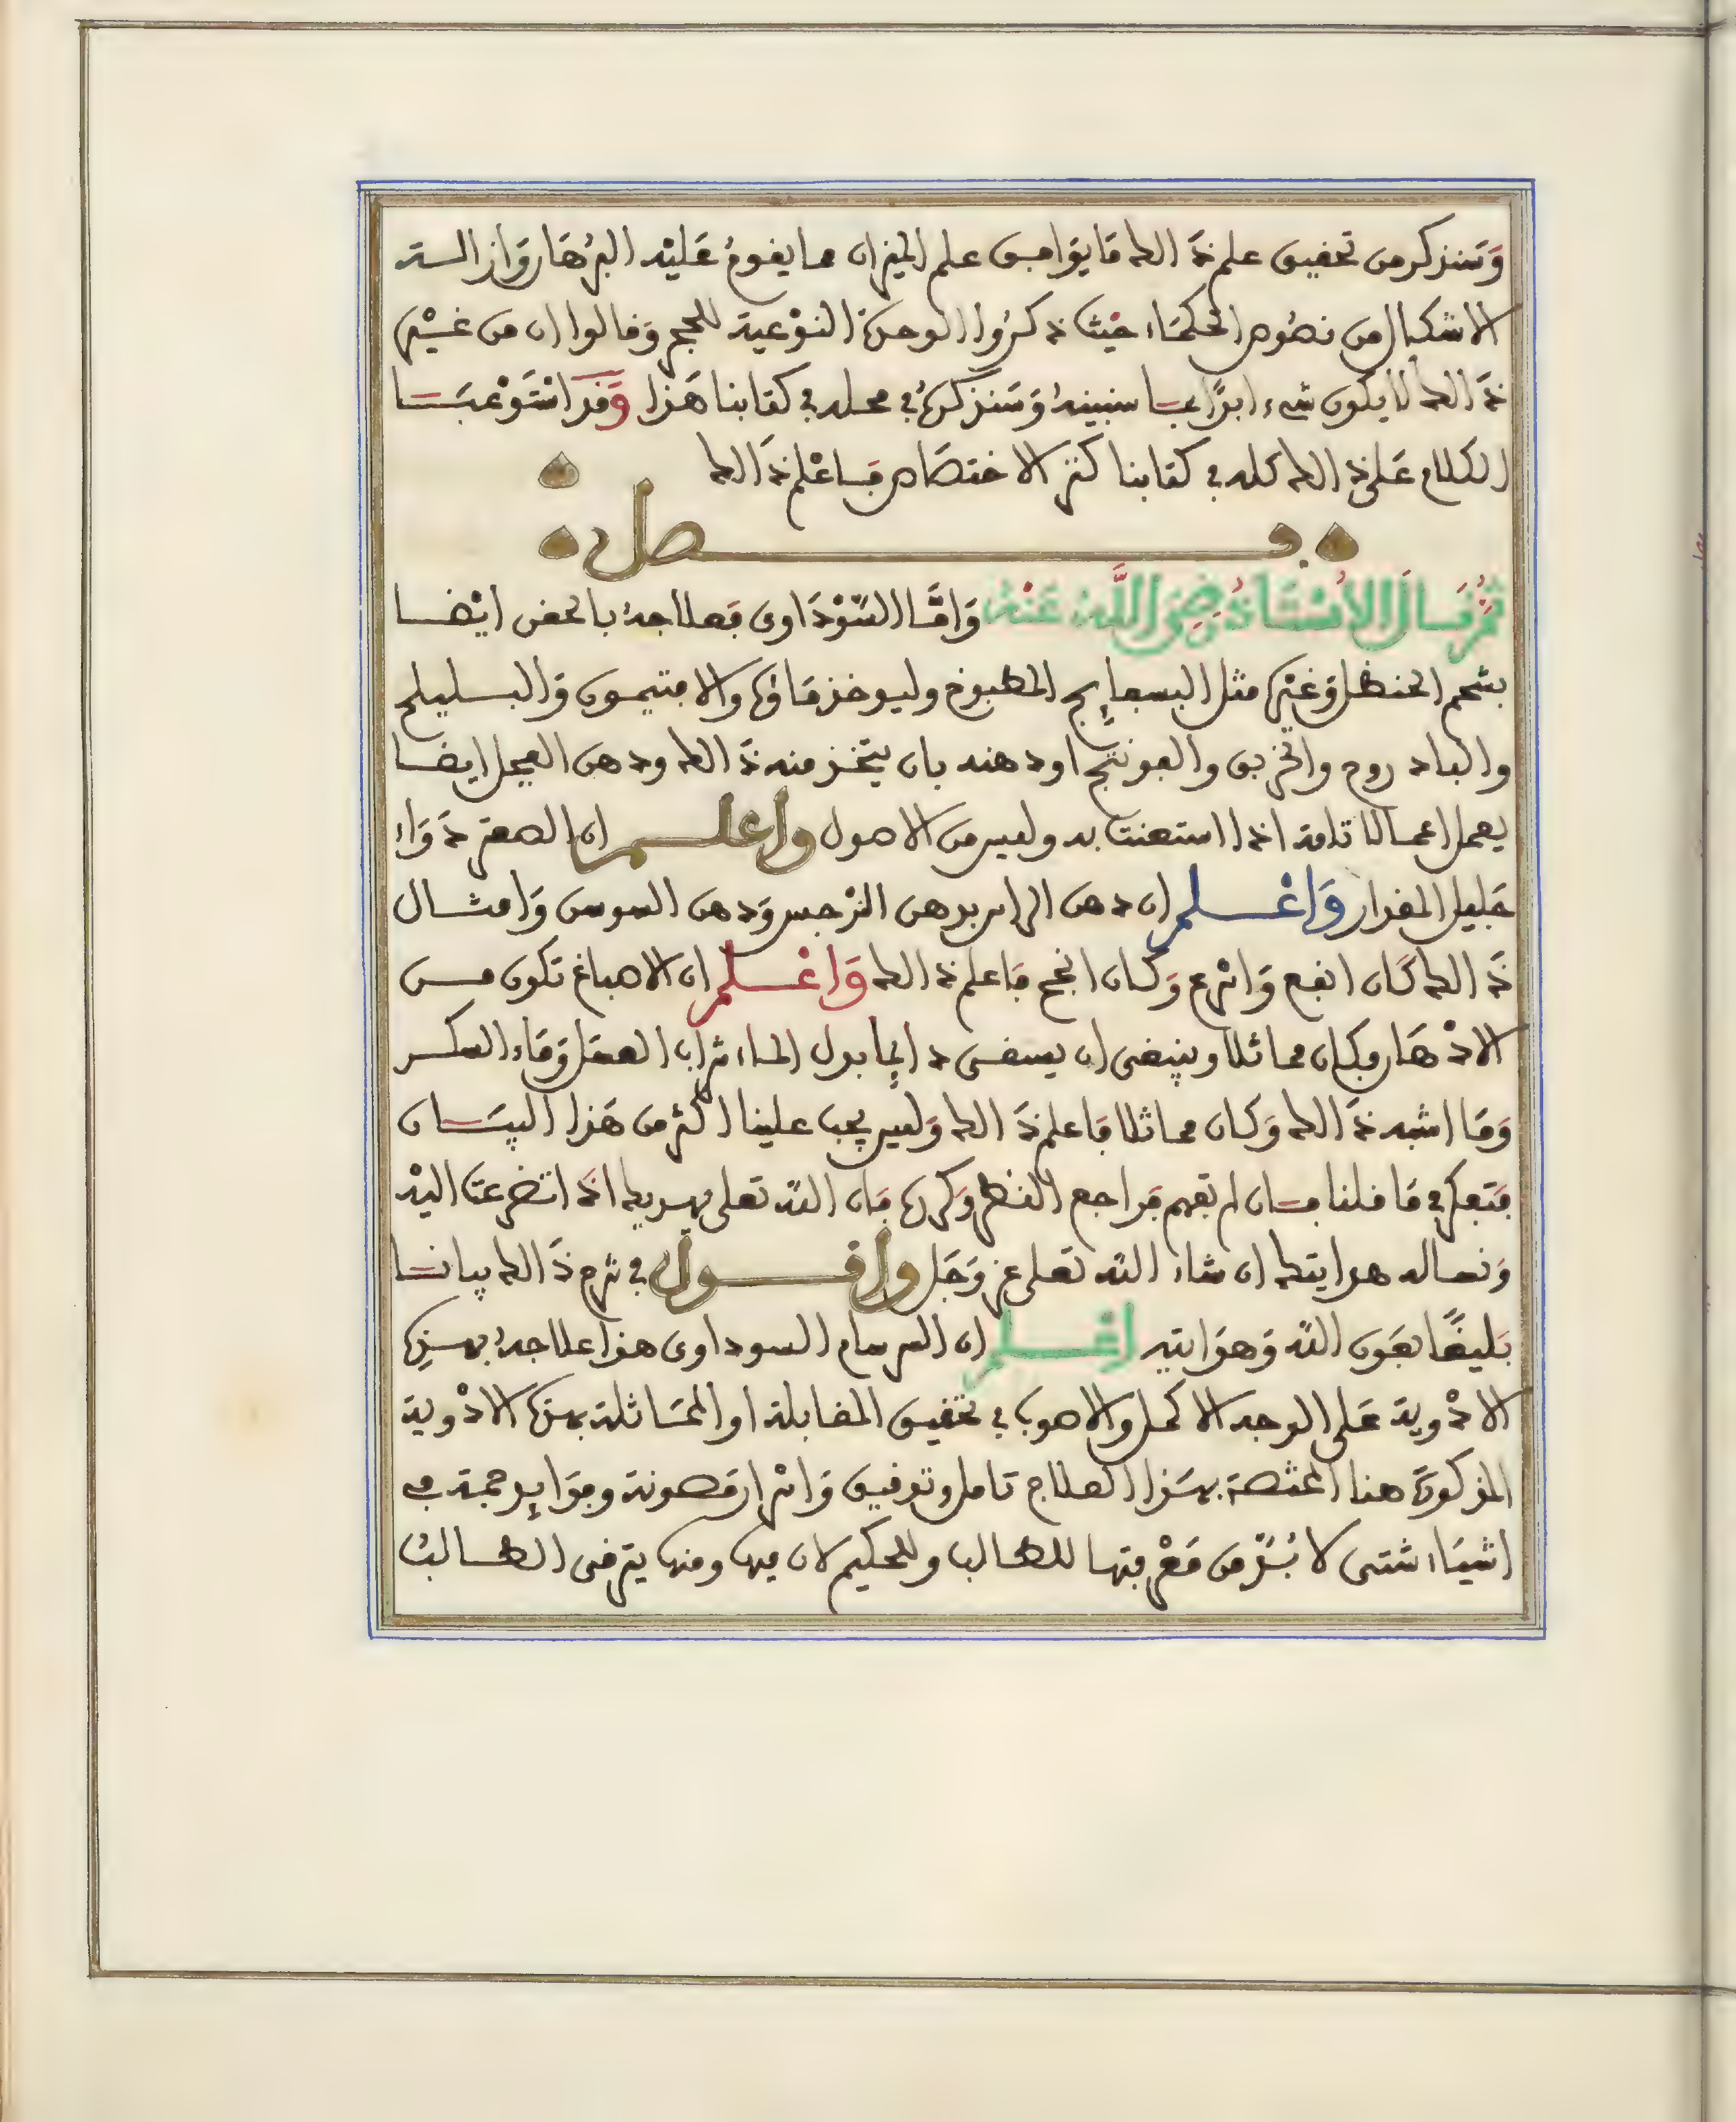 وَسَنذكر من تحقيق علم ذَالك مَا يوافق علم الميزان مما يقومُ عَليْه البرُهَان وَازالة
الاشكال من نصُوص الحكمَاء حيْث ذكرُوا الوحدَة النوْعية للحجر وَقالوا ان من غيْره
ذَالك لا يكون شيء ابدًا بما سنبينهُ وَسَنذكرهُ في محله في كتابنا هَذا وَقد اسْتَوْعبنا
الكلام عَلى ذَالك كله في كتابنا كنز الاختصَاص فاعْلم ذَالك
فصل
ثمّ قال الأسْتَاذ رضِيَ اللَّه عَنْه وَامَّا السَّوْدَاوى فعلاجهُ بالحقن ايْضا
بشحم الحنظل وَغيْره مثل البسفايج المطبوخ وليوخذ مَاؤه والافتيمون وَالبليلج
والباد روج والخربق والفوتنج او دهنه بان يتخذ منه ذَالك ودهن الفجل ايضا
يعمل اعمالا تامة اذا استعنت به وليس من الاصول واعلم ان الصعتر دوَاء
جَليل المقدار وَاعْلم ان دهن الراس بدهن النرْجس وَدهن السوسن وَامثال
ذَالك كَان انفع وَاسْرع وَكان انجح فاعلم ذَالك وَاعْلم ان الاصباغ تكون من
الادْهَان وكان مماثلا وينبغى ان يسقى دايما بدل الماء شراب العسل وَمَاء السكر
وَمَا اشبه ذَالك وَكان مماثلا فاعلم ذَالك وَليس يجب علينا اكثر من هَذا البيَان
فتفكر في مَا قلنا فان لم تفهم فراجع النظر وَكرره فان اللّه تعلى يهديك اذَا تضرعتَ اليْه
وَنساله هدايتك ان شاء اللّه تعَلى عز وَجَل واقول في شرح ذَالك بيانا
بَليغًا بعَون اللّه وَهدَايته اعْلم ان السرسام السوداوى هذا علاجهُ بهذِه
الادْوية عَلى الوجه الاكمل والاصوب في تحقيق المقابلة او المُمَاثلة بهذه الادْوية
المذكورَة هنا المختصة بهَذا العلاج تامل وتوفيق وَاسْرار مَصونة وفوَايد جمة فى
اشيَاء شتى لا بُدّ من مَعْرفتها للطالب وللحكيم لان فيها ومنها يترقى الطالبُ